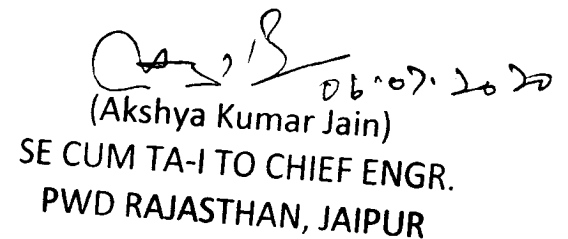 06.07.2020
(Akshya Kumar Jain)
SE CUM TA-I TO CHIEF ENGR.
PWD RAJASTHAN, JAIPUR